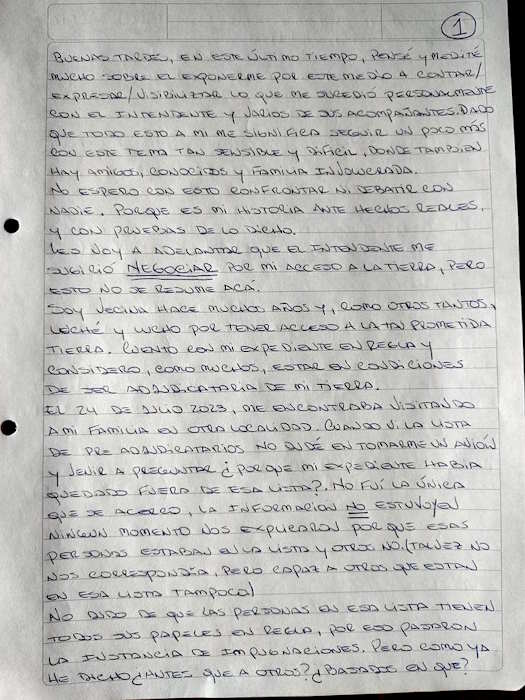 1
BUENAS TARDES, EN ESTE ÚLTIMO TIEMPO, PENSÉ Y MEDITÉ
MUCHO SOBRE EL EXPONERME POR ESTE MEDIO A CONTAR/
EXPRESAR/VISIBILIZAR LO QUE ME SUCEDIÓ PERSONALMENTE
CON EL INTENDENTE Y VARIOS DE SUS ACOMPAÑANTES. DADO
QUE TODO ESTO A MI ME SIGNIFICA SEGUIR UN POCO MÁS
CON ESTE TEMA TAN SENSIBLE Y DIFICIL, DONDE TAMBIEN
HAY AMIGOS, CONOCIDOS Y FAMILIA INVOLUCRADA.
NO ESPERO CON ESTO CONFRONTAR NI DEBATIR CON
NADIE. PORQUE ES MI HISTORIA ANTE HECHOS REALES,
Y CON PRUEBAS DE LO DICHO.
LES VOY A ADELANTAR QUE EL INTENDENTE ME
SUGIRIÓ NEGOCIAR POR MI ACCESO A LA TIERRA, PERO
ESTO NO SE RESUME ACÁ.
SOY VECINA HACE MUCHOS AÑOS Y, COMO OTROS TANTOS,
LUCHÉ Y LUCHO POR TENER ACCESO A LA TAN PROMETIDA
TIERRA. CUENTO CON MI EXPEDIENTE EN REGLA Y
CONSIDERO, COMO MUCHOS, ESTAR EN CONDICIONES
DE SER ADJUDICATARIA DE MI TIERRA.
EL 24 DE JULIO 2023, ME ENCONTRABA VISITANDO
A MI FAMILIA EN OTRA LOCALIDAD. CUANDO VI LA LISTA
DE PRE ADJUDICATARIOS NO DUDÉ EN TOMARME UN AVIÓN
Y VENIR A PREGUNTAR ¿PORQUE MI EXPEDIENTE HABIA
QUEDADO FUERA DE ESA LISTA?. NO FUÍ LA ÚNICA
QUE SE ACERCO, LA INFORMACION NO ESTUVO Y EN
NINGUN MOMENTO NOS EXPLICARON POR QUE ESAS
PERSONAS ESTABAN EN LA LISTA Y OTROS NO. (TALVEZ NO
NOS CORRESPONDÍA, PERO CAPAZ A OTROS QUE ESTAN
EN ESA LISTA TAMPOCO)
NO DUDO DE QUE LAS PERSONAS EN ESA LISTA TIENEN
TODOS SUS PAPELES EN REGLA, POR ESO PASARON
LA INSTANCIA DE IMPUGNACIONES. PERO COMO YA
HE DICHO ¿ANTES QUE A OTROS? ¿BASADOS EN QUE?